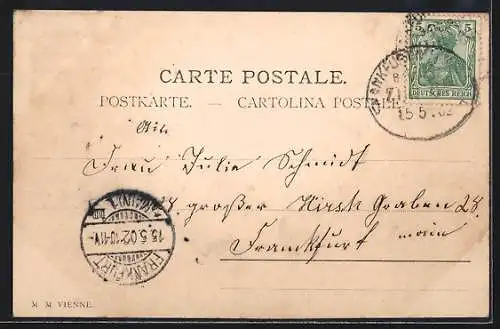 CARTE POSTALE.
POSTKARTE. — CARTOLINA POSTALE
5 5
DEUTSCHES REICH
15 5 02
Frau Julie Schmidt
28. großer Hirsch Graben 28.
Frankfurt main
15.5.02.10-11V.
FRANKFURT
M. M. VIENNE.